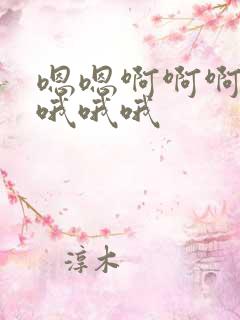 嗯嗯啊啊啊
哦哦哦
淳木